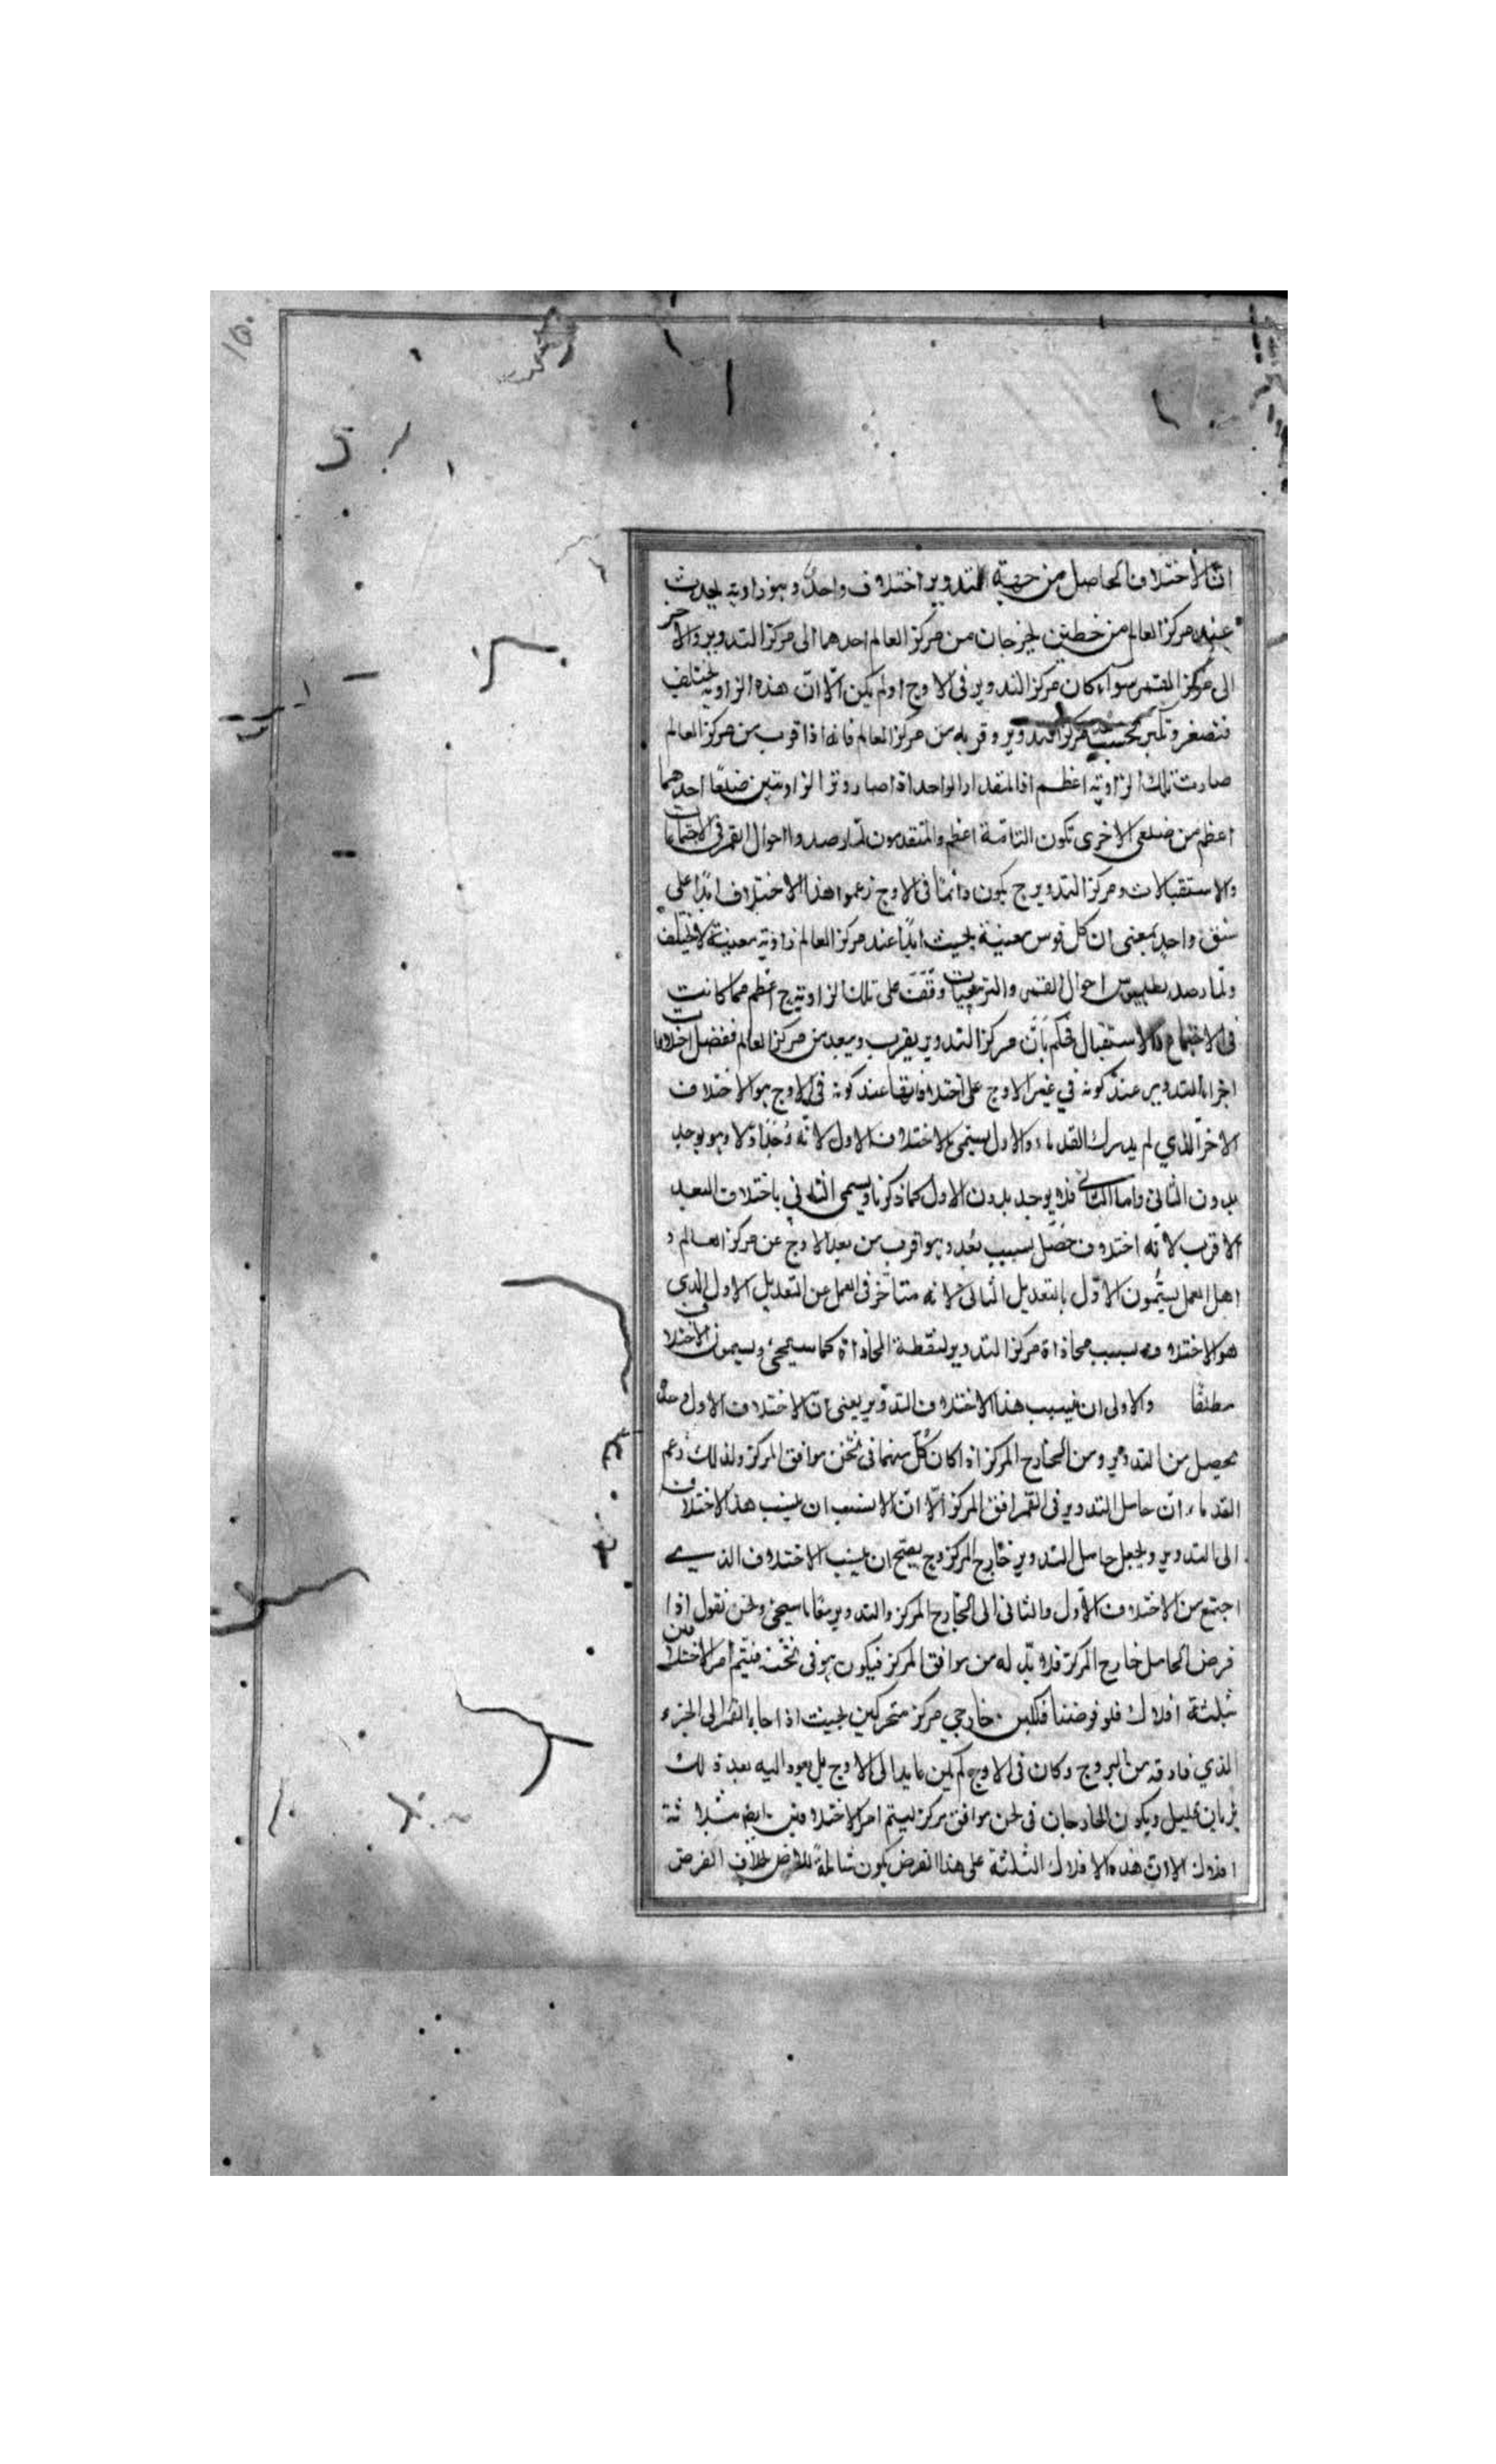 انّ الاختلاف الحاصل من جهة التدوير اختلاف واحد وهو زاوية يحدث
عند مركز العالم من خطين يخرجان من مركز العالم احدهما الى مركز التدوير والاخر
الى مركز القمر سواء كان مركز التدوير فى الاوج اولم يكن الّا انّ هذه الزاوية يختلف
فتصغر وتكبر بحسب مركز التدوير وقربه من مركز العالم فانه اذا قرب من مركز العالم
صارت تلك الزاوية اعظم اذ المقدار الواحد اذا صار وتر الزاويتين ضلعا احدهما
اعظم من ضلعى الاخرى تكون الثانية اعظم والمتقدمون لمّا رصدوا احوال القمر فى الاجتماعات
والاستقبالات ومركز التدوير ح يكون دائما فى الاوج زعموا هذا الاختلاف ابدا على
نسق واحد بمعنى ان كل قوس معينة بحيث ابدًا عند مركز العالم زاوية معينة لا يختلف
ولمّا رصد بطليموس احوال القمر والتربيعات وقف على تلك الزاوية ح اعظم مما كانت
فى الاجتماع والاستقبال فحكم بانّ مركز التدوير يقرب ويبعد من مركز العالم ففضل اختلافات
اجزاء التدوير عند كونه في غير الاوج على اختلافاتها عند كونه فى الاوج هو الاختلاف
الاخر الذي لم يدرك القدماء والاول يسمى بالاختلاف الاول لانّه وُجِدَ اوّلا وهو يوجد
بدون الثانى واما الثانى فلا يوجد بدون الاول كما ذكرنا ويسمى الثانى باختلاف البعد
الاقرب لانّه اختلاف حصل بسبب بُعد وهو اقرب من بعد الاوج عن مركز العالم و
اهل العمل يسمّون الاوّل بالتعديل الثانى لانه متاخر فى العمل عن التعديل الاول الذي
هو الاختلاف بسبب محاذاة مركز التدوير لنقطة المحاذاة كما سيجئ ويسمون الاختلاف
مطلقًا والاولى ان ينسب هذا الاختلاف التدوير يعنى انّ الاختلاف الاول وحده
يحصل من التدوير ومن الخارج المركز اذا كان كلّ منهما فى ثخن موافق المركز ولذلك زعم
القدماء انّ حامل التدوير فى القمر موافق المركز الّا انّ الانسب ان ينسب هذا الاختلاف
الى التدوير ويجعل حامل التدوير خارج المركز وح يصح ان ينسب الاختلاف الذي
اجتمع من الاختلاف الاول والثانى الى الخارج المركز والتدوير معًا سيجئ ونحن نقول اذا
فرض الحامل خارج المركز فلا بدّ له من موافق المركز فيكون هو فى ثخنه فيتم امر الاختلافين
بثلثة افلاك فلو فرضنا فلكين خارجي مركز متحركين بحيث اذا جاء القمر الى الجزء
الذي فارقه من البروج وكان فى الاوج لم يكن عايدا الى الاوج بل يعود اليه بعد ذلك
بزمان قليل ويكون الخارجان فى ثخن موافق مركز ليتم امر الاختلافين ايضا بثلاثة
افلاك الا انّ هذه الافلاك الثلثة على هذا الفرض يكون شاملة للارض بخلاف الفرض